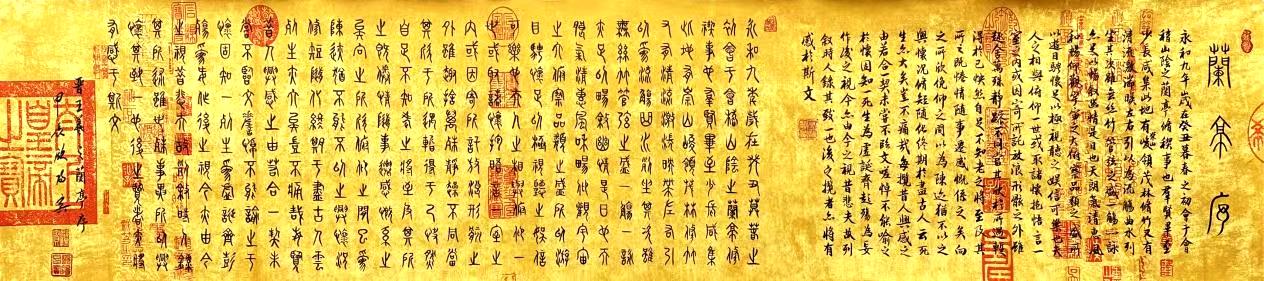 蘭亭序
永和九年歲在癸丑暮春之初會于會
稽山陰之蘭亭脩稧事也羣賢畢至
少長咸集此地有峻領茂林脩竹又有
清流激湍暎帶左右引以為流觴曲水列
坐其次雖無絲竹管弦之盛一觴一詠
亦足以暢敘幽情是日也天朗氣清惠風
和暢仰觀宇宙之大俯察品類之盛所
以遊目騁懷足以極視聽之娛信可樂也夫
人之相與俯仰一世或取諸懷抱悟言一
室之內或因寄所託放浪形骸之外雖
趣舍萬殊靜躁不同當其欣於所遇輒
得於己怏然自足不知老之將至及其
所之既惓情隨事遷感慨係之矣向
之所欣俛仰之閒以為陳迹猶不以之
興懷況脩短隨化終期於盡古人云死
生亦大矣豈不痛哉每攬昔人興感之
由若合一契未嘗不臨文嗟悼不能喻之
於懷固知一死生為虛誕齊彭殤為妄
作後之視今亦由今之視昔悲夫故列
敘時人錄其致一也後之攬者亦將有
感於斯文
永和九年歲在癸丑暮春之
初會于會稽山陰之蘭亭脩
禊事也羣賢畢至少長咸集
此地有崇山峻領茂林脩竹
又有清流激湍映帶左右引
以為流觴曲水列坐其次雖
無絲竹管弦之盛一觴一詠
亦足以暢敘幽情是日也天
朗氣清惠風和暢仰觀宇宙
之大俯察品類之盛所以遊
目騁懷足以極視聽之娛信
可樂也夫人之相與俯仰一
世或取諸懷抱晤言一室之
內或因寄所託放浪形骸之
外雖趣舍萬殊靜躁不同當
其欣於所遇暫得于己快然
自足不知老之將至及其所
之既倦情隨事遷感慨係之
矣向之所欣俛仰之間已為
陳迹猶不能不以之興懷況
脩短隨化終期于盡古人雲
死生亦大矣豈不痛哉每攬
昔人興感之由若合一契未
嘗不臨文嗟悼不能喻之于
懷固知一死生為虛誕齊彭
殤為妄作後之視今亦由今
之視昔悲夫故列敘時人錄
其所述雖世殊事異所以興
懷其致一也後之攬者亦將
有感于斯文
晉王羲之蘭亭序
皇帝之寶